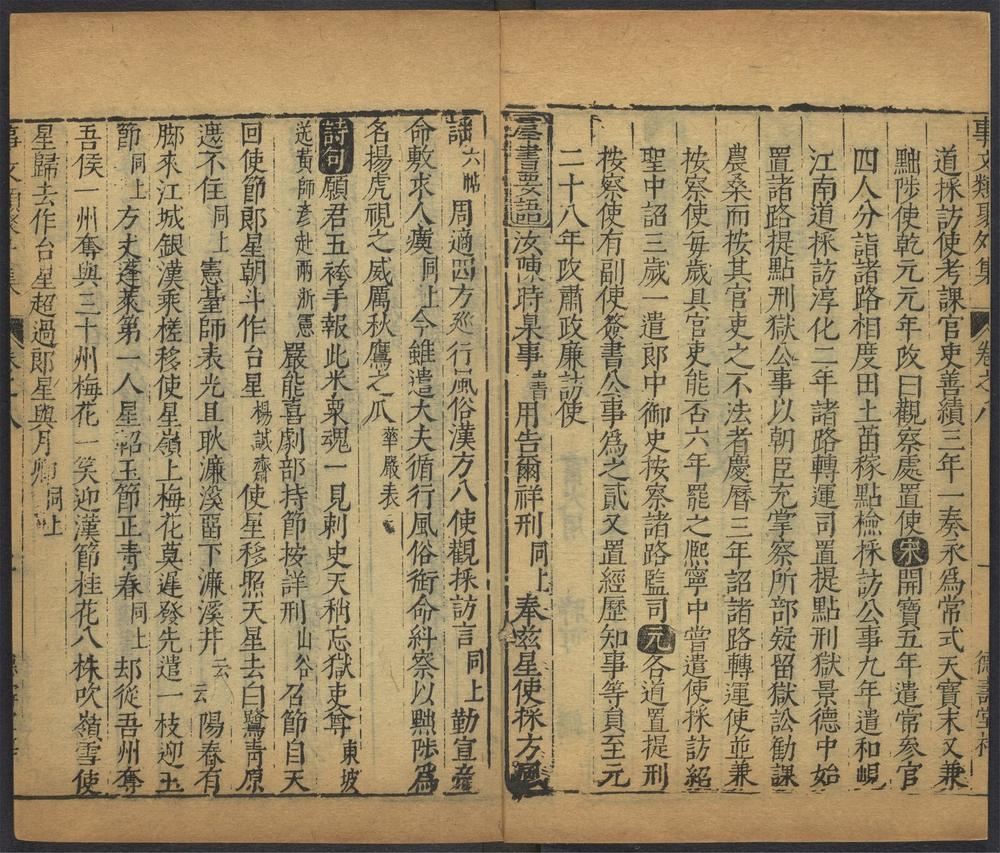 事文類聚外集 卷之八 德壽堂梓
道採訪使考課官吏善績三年一奏永爲常式天寶末又兼
黜陟使乾元元年改曰觀察處置使宋開寶五年遣常參官
四人分詣諸路相度田土苗稼點檢採訪公事九年遣和峴
江南道採訪淳化二年諸路轉運司置提點刑獄景德中始
置諸路提點刑獄公事以朝臣充掌察所部疑留獄訟勸課
農桑而按其官吏之不法者慶曆三年詔諸路轉運使並兼
按察使每歲具官吏能否六年罷之熈寧中嘗遣使採訪紹
聖中詔三歲一遣郎中御史按察諸路監司元各道置提刑
按察使有副使簽書公事爲之貳又置經歷知事等員至元
二十八年改肅政廉訪使
羣書要語汝陳時臬事書用告爾祥刑同上奉兹星使採方風
謡六帖周適四方廵行風俗漢方八使觀採訪言同上勤宣
命敷求人瘼同上今雖遣大夫循行風俗銜命糾察以黜陟爲
名揚虎視之威厲秋鷹之爪華嚴表
詩句願君五袴手報此米粟魂一見刺史天稍忘獄吏尊東坡
送黄師彦赴兩浙憲嚴能喜劇部持節按詳刑山谷召節自天
回使節郎星朝斗作台星楊誠齋使星移照天星去白鷺青原
遮不住同上憲臺師表光且耿濂溪留下濂溪井云云陽春有
脚來江城銀漢乘槎移使星嶺上梅花莫遲發先遣一枝迎玉
節同上方丈蓬萊第一人星軺玉節正青春同上却從吾州奪
吾侯一州奪與三十州梅花一笑迎漢節桂花八株吹嶺雪使
星歸去作台星超過郎星與月卿同上